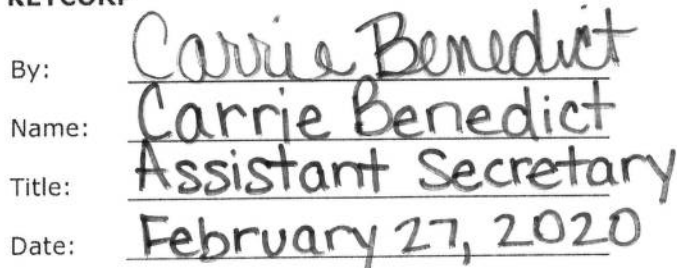 KEYCORP
By: Carrie Benedict
Name: Carrie Benedict
Title: Assistant Secretary
Date: February 27, 2020